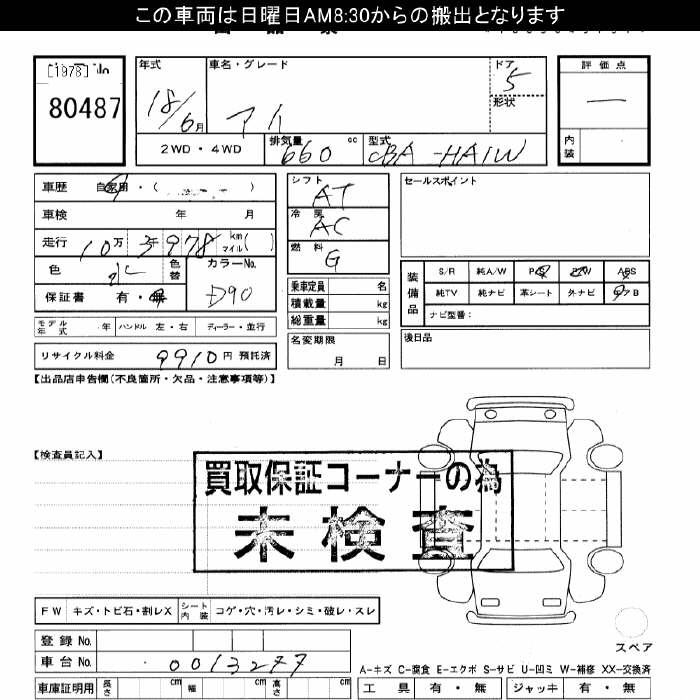 この車両は日曜日AM8:30からの搬出となります
[1978] No
80487
年式
18/6月
車名・グレード
アイ
ドア
5
形状
評価点
一
内装
2WD・4WD
排気量
660 cc
型式
CBA-HA1W
車歴 自家用・( )
車検 年 月
走行 10万 3千978 km マイル( )
色 水
色替
カラーNo.
D90
保証書 有・無
モデル年式 年 ハンドル 左・右 ディーラー・並行
リサイクル料金 9910円 預託済
シフト
AT
冷房
AC
燃料
G
乗車定員 名
積載量 kg
総重量 kg
名変期限
月 日
セールスポイント
装備品
S/R 純A/W P/S P/W ABS
純TV 純ナビ 革シート 外ナビ エアB
ナビ型番:
後日品
【出品店申告欄(不良箇所・欠品・注意事項等)】
【検査員記入】
買取保証コーナーの為
未検査
FW キズ・トビ石・割レX シート内装 コゲ・穴・汚レ・シミ・破レ・スレ
登録No.
車台No. 0013277
車庫証明用 長さ cm 幅 cm 高さ cm
スペア
A-キズ C-腐食 E-エクボ S-サビ U-凹ミ W-補修 XX-交換済
工具 有・無 ジャッキ 有・無